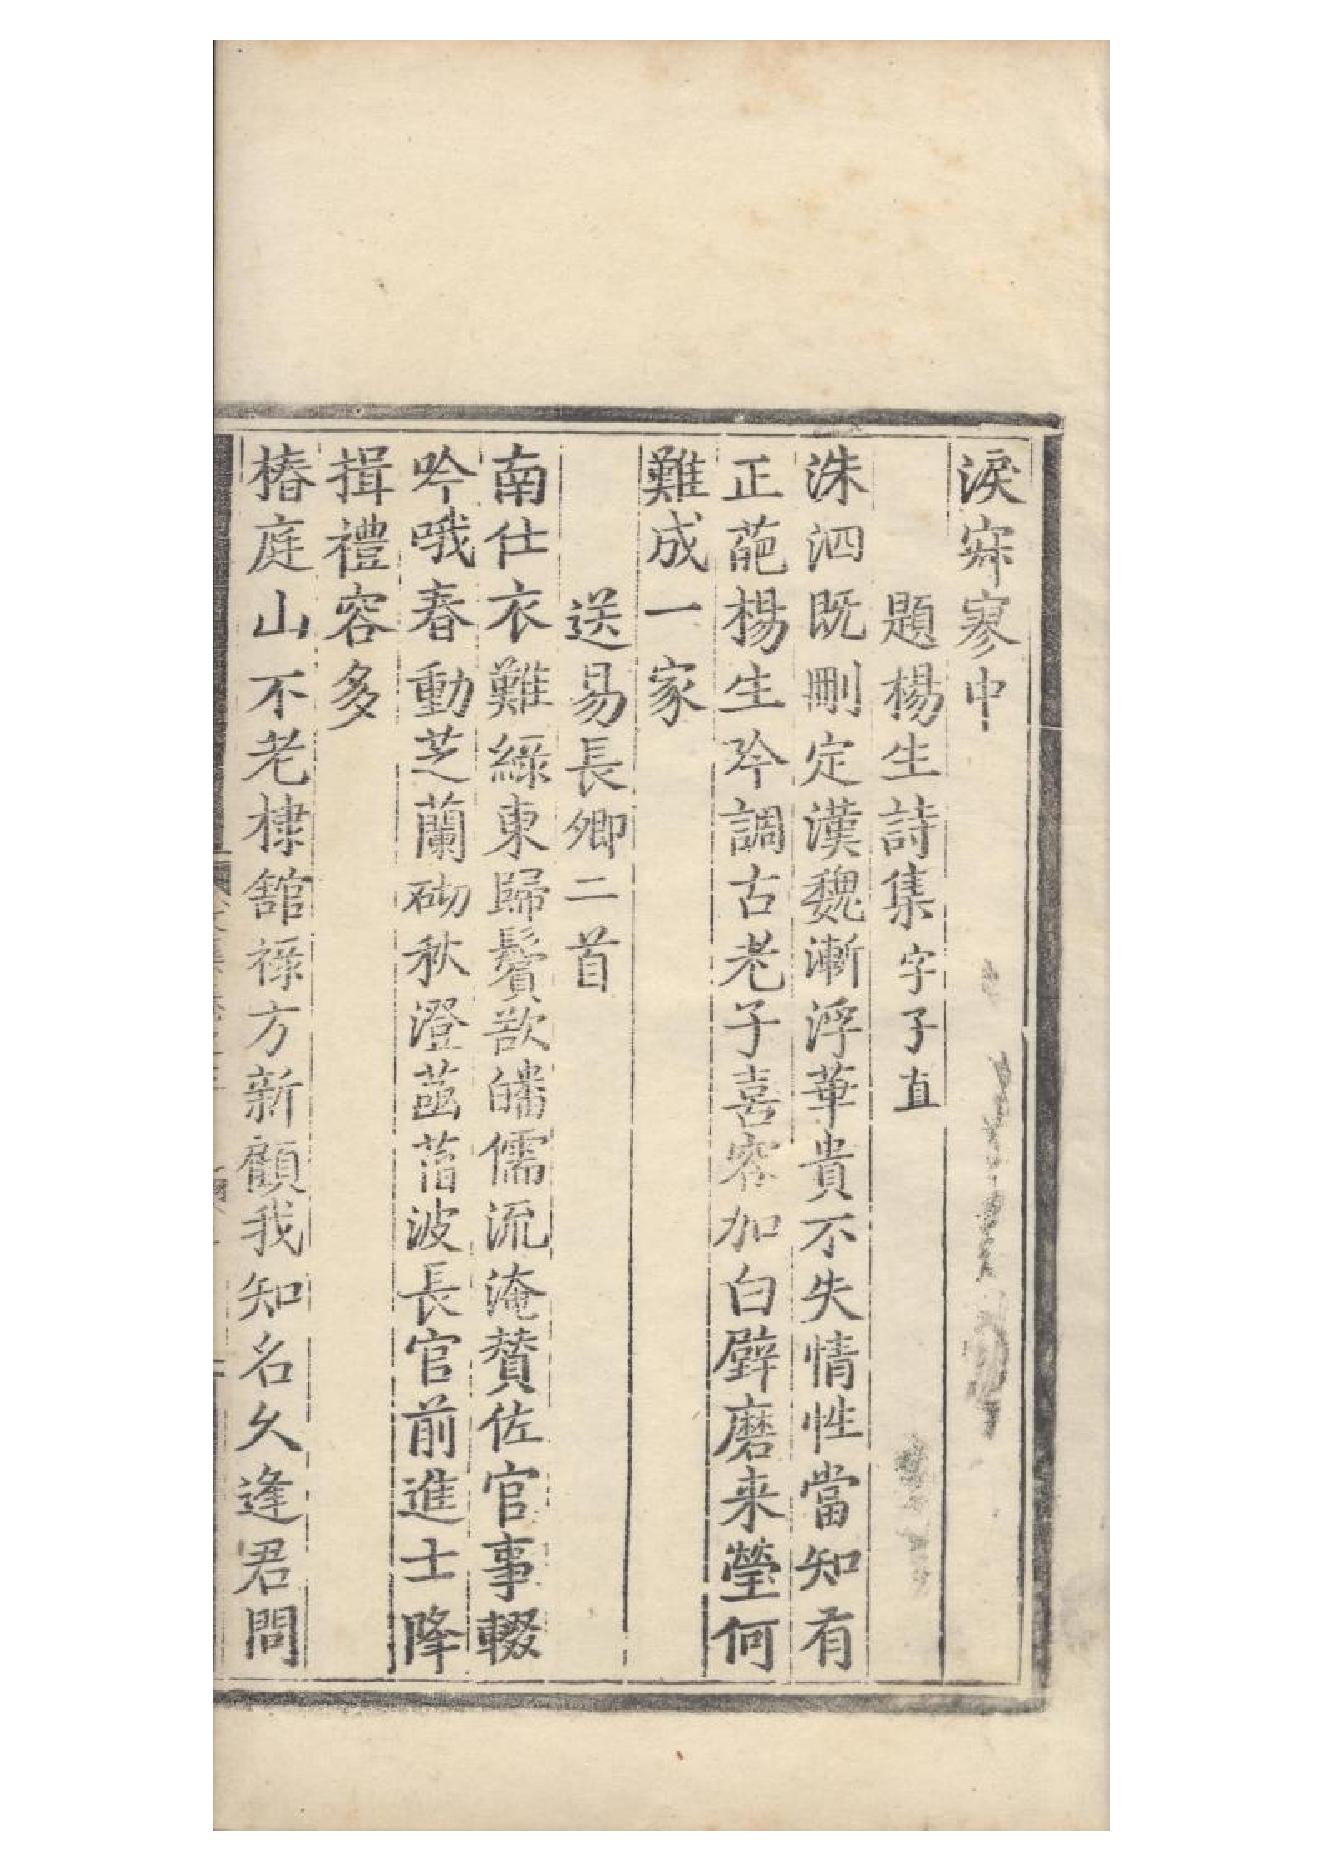 淚寂寥中
題楊生詩集字子直
洙泗既刪定漢魏漸浮華貴不失情性當知有
正葩楊生吟調古老子喜容加白璧磨来瑩何
難成一家
送易長卿二首
南仕衣難綠東歸鬢欲皤儒流淹賛佐官事輟
吟哦春動芝蘭砌秋澄菡萏波長官前進士降
揖禮容多
椿庭山不老棣舘祿方新顧我知名久逢君問